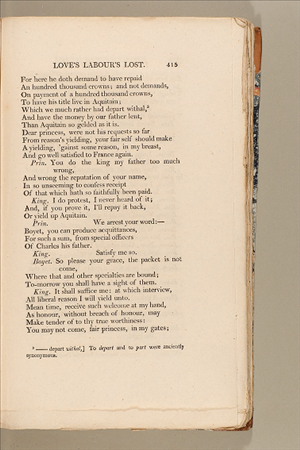 LOVE'S LABOUR'S LOST. 415
For here he doth demand to have repaid
An hundred thousand crowns; and not demands,
On payment of a hundred thousand crowns,
To have his title live in Aquitain;
Which we much rather had depart withal,⁸
And have the money by our father lent,
Than Aquitain so gelded as it is.
Dear princess, were not his requests so far
From reason's yielding, your fair self should make
A yielding, 'gainst some reason, in my breast,
And go well satisfied to France again.
Prin. You do the king my father too much
wrong,
And wrong the reputation of your name,
In so unseeming to confess receipt
Of that which hath so faithfully been paid.
King. I do protest, I never heard of it;
And, if you prove it, I'll repay it back,
Or yield up Aquitain.
Prin. We arrest your word:—
Boyet, you can produce acquittances,
For such a sum, from special officers
Of Charles his father.
King. Satisfy me so.
Boyet. So please your grace, the packet is not
come,
Where that and other specialties are bound;
To-morrow you shall have a sight of them.
King. It shall suffice me: at which interview,
All liberal reason I will yield unto.
Mean time, receive such welcome at my hand,
As honour, without breach of honour, may
Make tender of to thy true worthiness:
You may not come, fair princess, in my gates;
⁸ —— depart withal,] To depart and to part were anciently
synonymous.